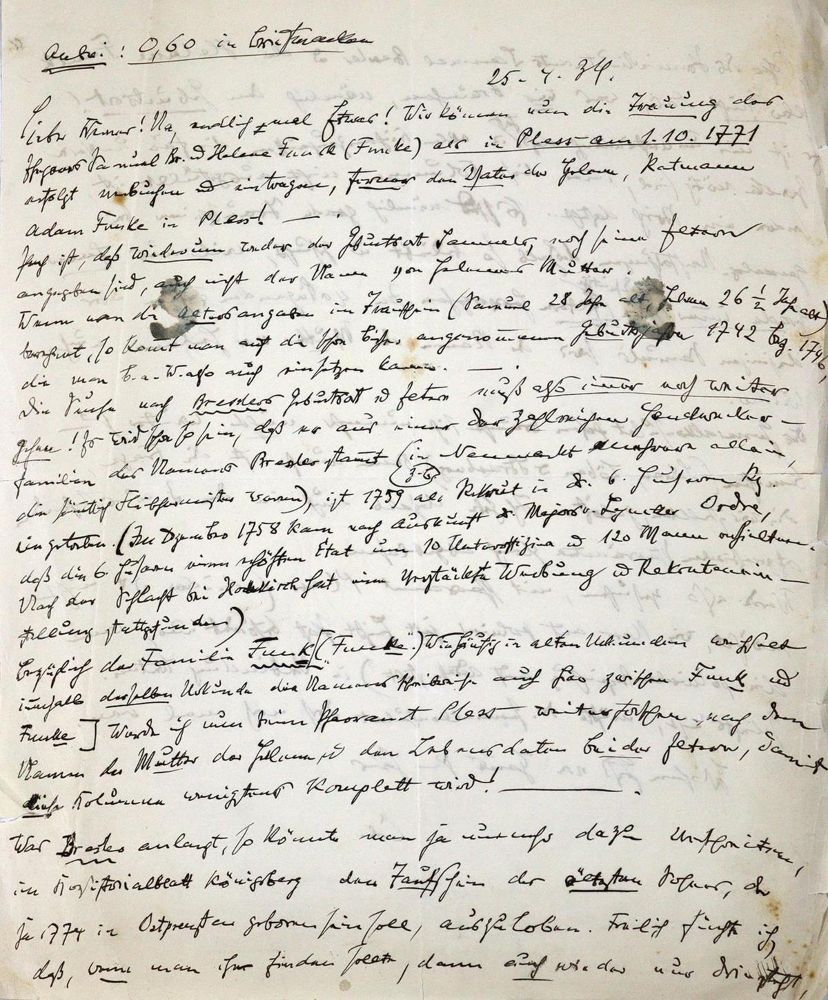 Anbei: 0,60 in Briefmarken
25. 4. 34.
Lieber Werner! Na, endlich mal Etwas! Wir können nun die Trauung des
Ehepaars Samuel Br. u Helene Funck (Funcke) als in Pless am 1. 10. 1771
erfolgt verbuchen u eintragen, ferner den Vater der Helene, Ratmann
Adam Funke in Pless! —
ist, daß wiederum weder der Geburtsort Samuels, noch seine Eltern
angegeben sind, auch nicht der Name von Helenes Mutter.
Wenn man die Altersangaben im Trauschein (Samuel 28 Jahre alt, Helene 26 ½ Jahre alt)
berechnet, so kommt man auf die schon bisher angenommenen Geburtsjahre 1742 bzw. 1746,
die man auch einsetzen kann. — .
Die Suche nach Breslers Geburtsort u Eltern muß also immer noch weiter
gehen! Es wird schon so sein, daß er aus einer der zahlreichen Handwerker-
familien des Namens Bresler stammt (in Neumarkt allein,
z. B.
die sämtlich waren), ist 1759 als Rekrut in d. 6. Husaren Rg.
eingetreten. (Im Dezember 1758 kam nach Auskunft d. Majors v. Ordre,
daß die 6. Husaren einen erhöhten Etat um 10 Unteroffiziere u 120 Mann erhielten.
Nach der Schlacht bei Hochkirch hat eine verstärkte Werbung u Rekrutenein-
stellung stattgefunden)
Bezüglich der Familie Funk [(Funcke".) Wie häufig in alten Urkunden wechselt
innerhalb derselben Urkunde die Namensschreibweise auch hier zwischen Funk und
Funke] werde ich nun beim Pfarramt Pless weiterforschen, nach dem
Namen der Mutter der Helene u den Lebensdaten beider Eltern, damit
diese Kolumne wenigstens komplett wird! — .
Was Bresler anlangt, so könnte man ja nun noch dazu
im Königsberg den Taufschein des ältesten Sohnes, der
ja 1774 in Ostpreußen geboren sein soll, auszuloben. Freilich fürchte ich,
daß, wenn man ihn finden sollte, dann auch wieder nur